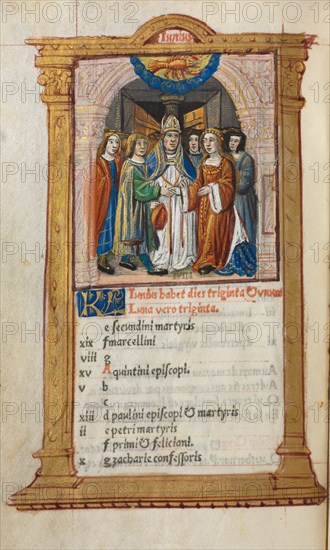 Iunius
XVIII
KL Iunius habet dies triginta &
Luna vero triginta.
e secundini martyris
xix f marcellini
viii g
xv A quintini episcopi.
v b
c
xiii d paulini episcopi & martyris
ii e petri martyris
f primi & feliciani.
x g zacharie confessoris
PHOTO12